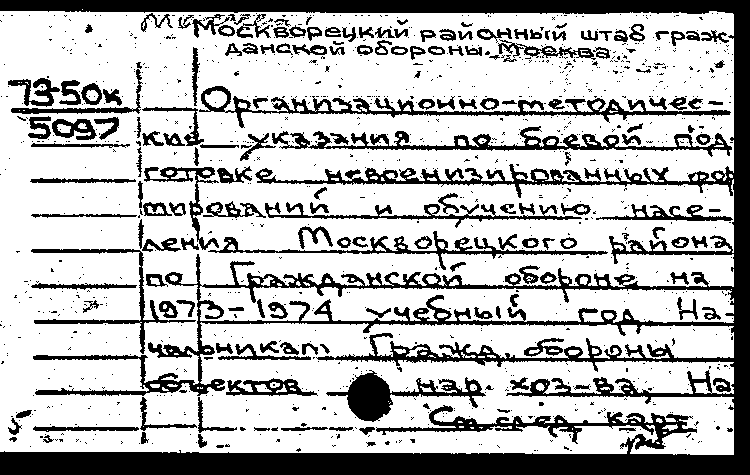 Москворецкий районный штаб граж-
данской обороны. Москва
73-50к
5097
Организационно-методичес-
кие указания по боевой под
готовке невоенизированных фор
мирований и обучению насе-
ления Москворецкого района
по Гражданской обороне на
1973-1974 учебный год На-
чальникам Гражд. обороны
объектов нар. хоз-ва, На
См след. карт